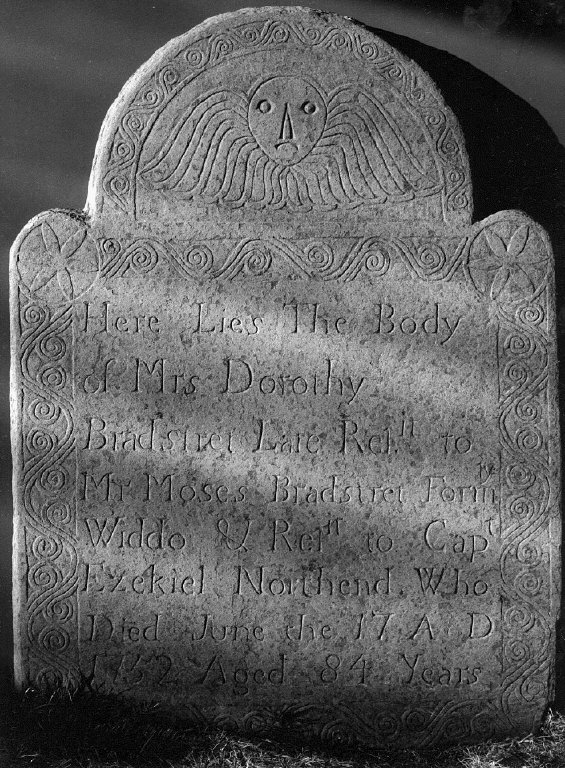 Here Lies The Body
of Mrs Dorothy
Bradstret Late Relt to
Mr Moses Bradstret Formly
Widdo & Relt to Capt
Ezekiel Northend Who
Died June the 17 A D
1752 Aged 84 Years